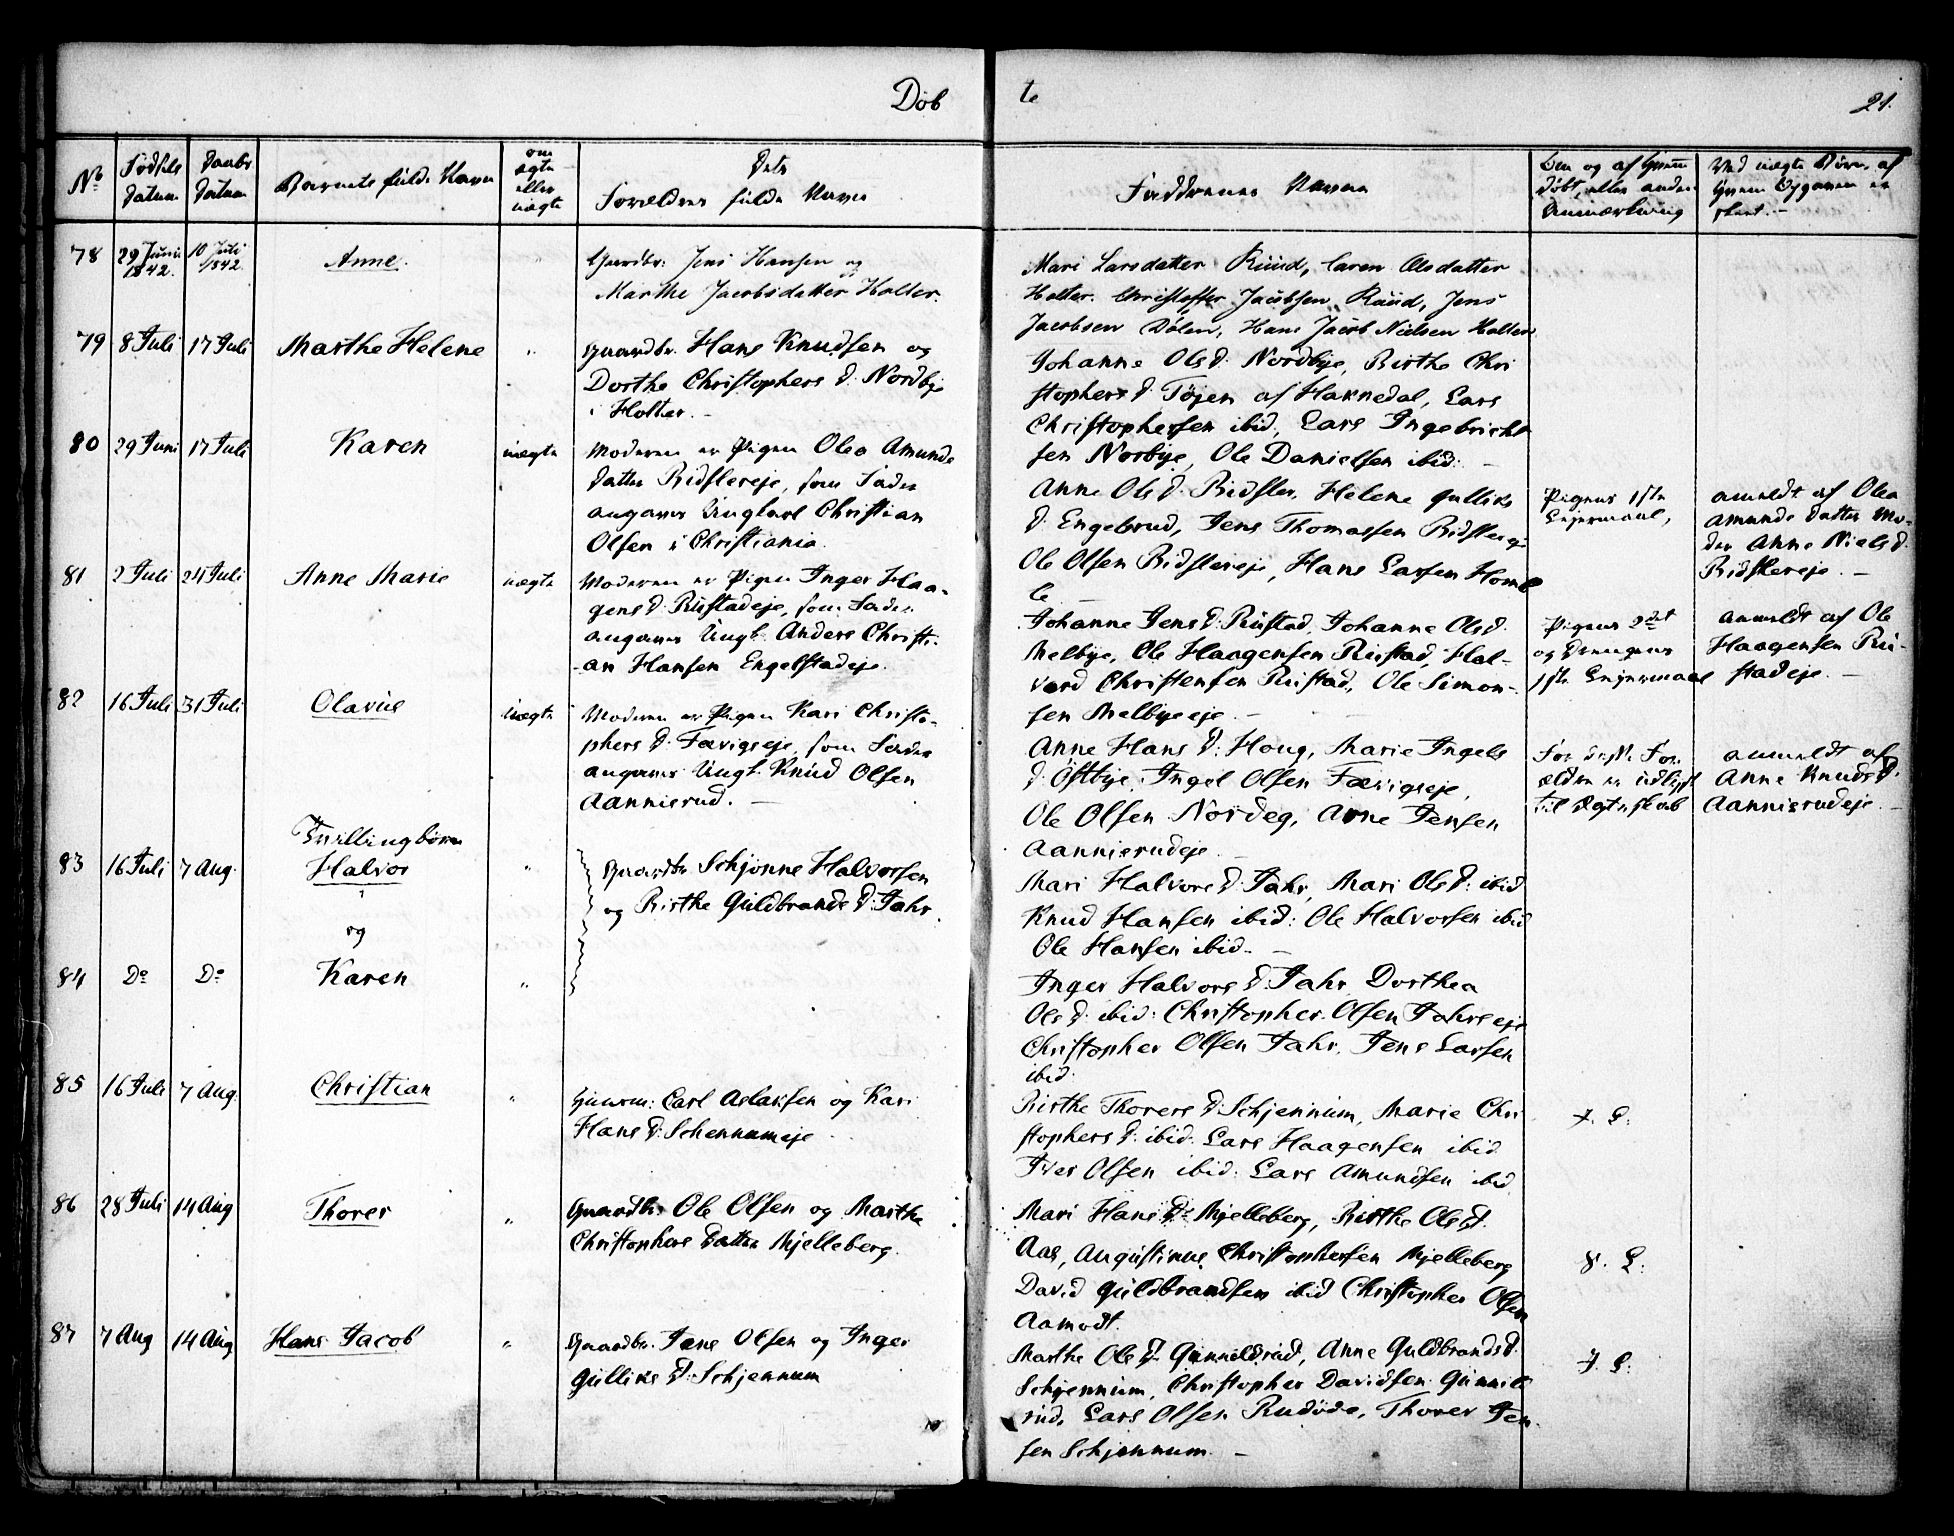 Døb te 21.
No
Fødsels Datum
Daabs Datum
Barnets fulde Navn
om ægte eller uægte
Dets Forældres fulde Navn
Faddrenes Navne
Døbt, eller anden Anmærkning
78 29 Juni 1842. 10 Juli 1842. Anne. "
Gaardbr: Jens Hansen og
Marthe Jacobsdatter Holter.
Mari Larsdatter Ruud, Caren Olsdatter
Holter. Christoffer Jacobsen Ruud, Jens
Jacobsen Dølen, Hans Jacob Nielsen Holter
79 8 Juli 17 Juli Marthe Helene "
Gaardbr. Hans Knudsen og
Dorthe Christophers D. Nordbye
i Holter. -
Johanne Olsd. Nordbye, Birthe Chri
stophers D. Tøjen af Haknedal, Lars
Christophersen ibid, Lars Ingebricht
sen Norbye, Ole Danielsen ibid: -
80 29 Juni 17 Juli Karen uægte
Moderen er Pigen Olea Amunds
datter Ridslereje, som Fader
angives Ungkarl Christian
Olsen i Christiania.
Anne Olsd. Ridsler, Helene Gulliks
d. Engebrud, Jens Thomassen Ridslereje
Ole Olsen Ridslereje, Hans Larsen Homb
le
Pigens 1ste
Lejermaal,
anmeldt af Olea
Amunds datters Mo-
der Anne Nielsd.
Ridslereje. -
81 2 Juli 24 Juli Anne Marie uægte
Moderen er Pigen Inger Haa-
gens d: Rustadeje, som Fader
angives Ungk: Anders Christi-
an Hansen Engelstadeje.
Johanne Jens d: Rustad, Johanne Olsd.
Melbye, Ole Haagensen Rustad, Hal-
vord Christensen Rustad, Ole Simon-
sen Melbyeeje. -
Pigens 2det
og Drengens
1ste Lejermaal
anmeldt af Ole
Haagensen Ru-
stadeje. -
82 16 Juli 31 Juli Olavus uægte
Moderen er Pigen Kari Christo-
phers D: Færigseje, som Fader
angives Ungk. Knud Olsen
Aannierud. -
Anne Hans D: Houg, Marie Ingels
d: Østbye, Ingel Olsen Færigseje,
Ole Olsen Nordeg, Arne Jensen
Aannierudeje. -
For -
ældre er udlyst
til Ægteskab
anmeldt af
Anne Knudsd.
Aannierudeje. -
Tvillingbørn
83 16 Juli 7 Aug. Halvor "
Gaardbr Schjønne Halvorsen
og Birthe Guldbrands D: Jahr.
Mari Halvors D: Jahr, Mari Olsd: ibid
Knud Hansen ibid: Ole Halvorsen ibid
Ole Hansen ibid. -
og
84 Do Do Karen "
Inger Halvors D: Jahr Dorthea
Olsd: ibid: Christopher Olsen Jahrseje
Christopher Olsen Jahr, Jens Larsen
ibid.
85 16 Juli 7 Aug. Christian "
Carl Aslaksen og Kari
Hans D: Schennumeje
Birthe Thorers D: Schjennum, Marie Chri
stophers D: ibid: Lars Haagensen ibid
Iver Olsen ibid: Lars Amundsen ibid
86 28 Juli 14 Aug Thorer "
Gaardbr Ole Olsen og Marthe
Christophers Datter Mjelleberg.
Mari Hans D: Mjelleberg, Birthe Olsd.
Aas, Augustinus Christophersen Mjelleberg
David Guldbrandsen ibid Christopher Olsen
Aamodt.
87 7 Aug 14 Aug Hans Jacob "
Gaardbr. Jens Olsen og Inger
Gulliks D: Schjennum
Marthe Olsd. Gunnildrud, Anne Guldbrandsd.
Schjennum, Christopher Davidsen Gunnild
rud, Lars Olsen Rudøde, Thorer Jen-
sen Schjennum. -